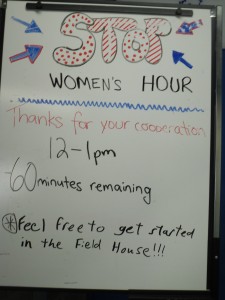 STOP
WOMEN'S HOUR
Thanks for your cooperation
12-1pm
60 minutes remaining
* Feel free to get started
in the Field House!!!